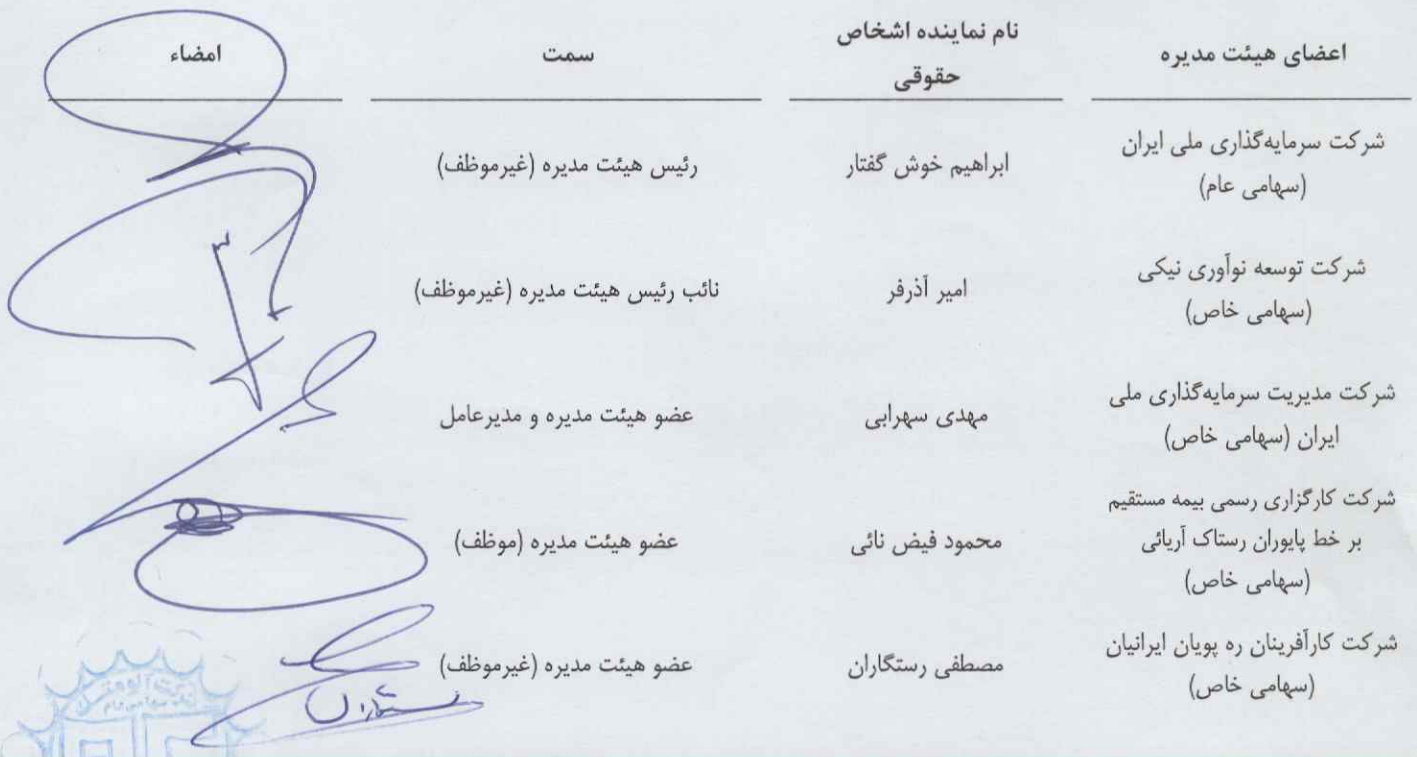 اعضای هیئت مدیره
نام نماینده اشخاص
حقوقی
سمت
امضاء
شرکت سرمایه‌گذاری ملی ایران
(سهامی عام)
ابراهیم خوش گفتار
رئیس هیئت مدیره (غیرموظف)
شرکت توسعه نوآوری نیکی
(سهامی خاص)
امیر آذرفر
نائب رئیس هیئت مدیره (غیرموظف)
شرکت مدیریت سرمایه‌گذاری ملی
ایران (سهامی خاص)
مهدی سهرابی
عضو هیئت مدیره و مدیرعامل
شرکت کارگزاری رسمی بیمه مستقیم
بر خط پایوران رستاک آریائی
(سهامی خاص)
محمود فیض نائی
عضو هیئت مدیره (موظف)
شرکت کارآفرینان ره پویان ایرانیان
(سهامی خاص)
مصطفی رستگاران
عضو هیئت مدیره (غیرموظف)